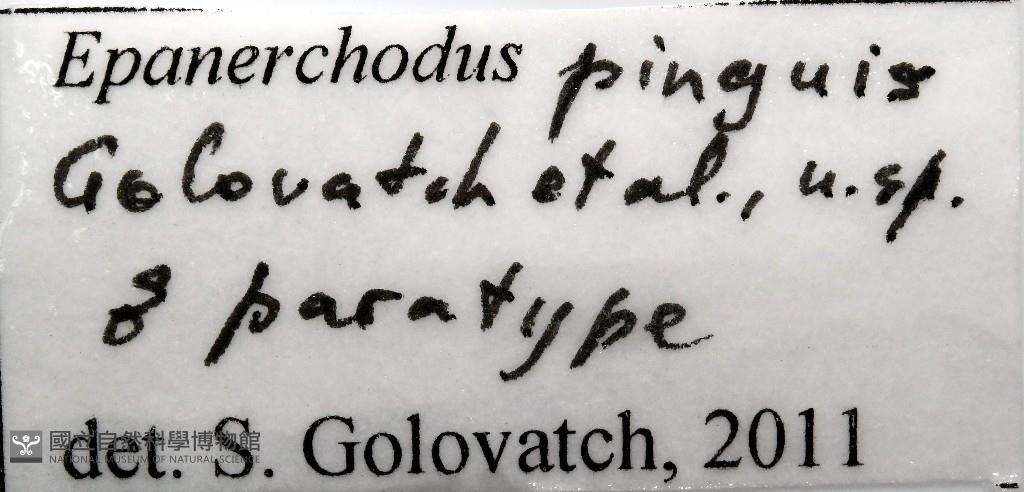 Epanerchodus pinguis
Golovatch et al., n. sp.
♂ paratype
det. S. Golovatch, 2011
國立自然科學博物館
NATIONAL MUSEUM OF NATURAL SCIENCE